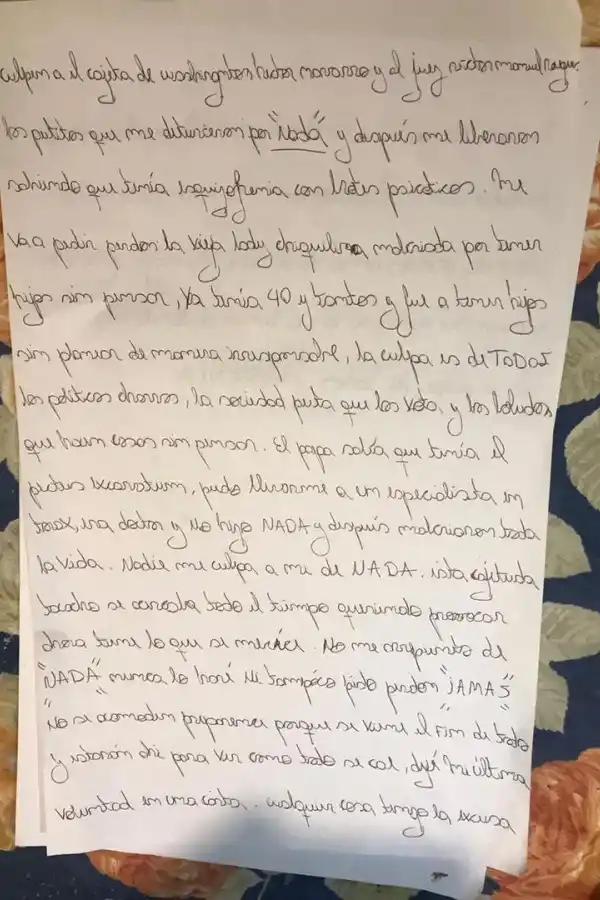 culpen a el cajeta de washington hector navarro y al juez victor manuel
los putitos que me detuvieron por "NADA" y después me liberaron
sabiendo que tenia esquizofrenia con brotes psicoticos. me
va a pedir perdon la vieja lady chiquilina malcriada por tener
hijos sin pensar, ya tenia 40 y tantos y fue a tener hijos
sin planear de manera irresponsable, la culpa es de TODOS
los politicos chorros, la sociedad puta que los vota, y los boludos
que hacen cosas sin pensar. El papa sabía que tenia el
pectus excavatum, pudo llevarme a un especialista en
torax, era doctor y No hizo NADA y después malcriaron toda
la vida. Nadie me culpa a mi de NADA. esta cajetuda
se la todo el tiempo queriendo provocar
ahora tiene lo que se merece. No me arrepiento de
"NADA" nunca lo haré Ni tampoco pido perdon "JAMAS"
"No se acomoden" preparense porque se viene el fin de todo
y estarán ahi para ver como todo se cae, dejé mi última
voluntad en una carta. cualquier cosa tengo la excusa